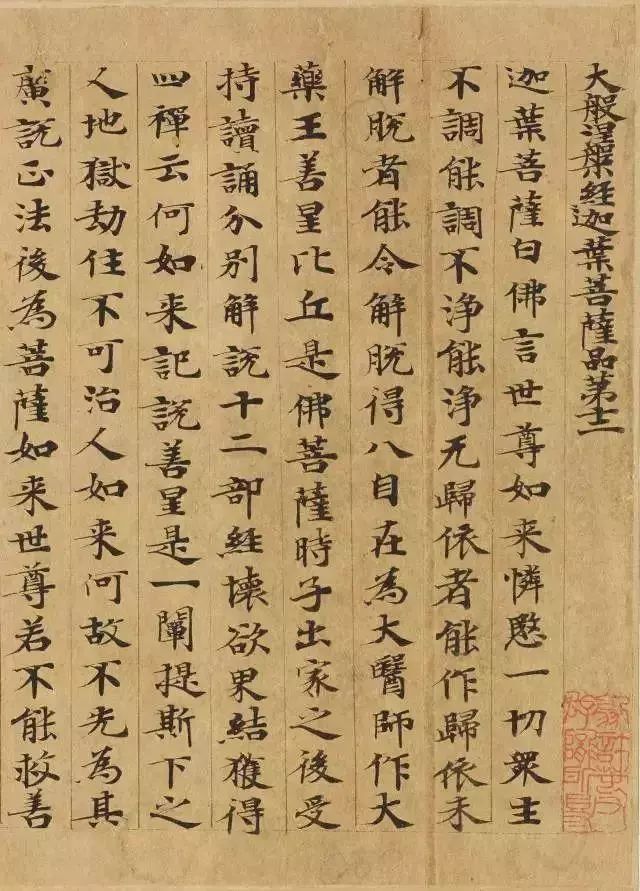 大般涅槃经迦葉菩薩品苐十二
迦葉菩薩白佛言世尊如来憐愍一切衆生
不調能調不浄能浄无歸依者能作歸依未
解脱者能令解脱得八自在為大醫師作大
藥王善星比丘是佛菩薩時子出家之後受
持讀誦分别解説十二部經壞欲界結獲得
四禪云何如来記説善星是一闡提斯下之
人地獄劫住不可治人如来何故不先為其
廣説正法後為菩薩如来世尊若不能救善